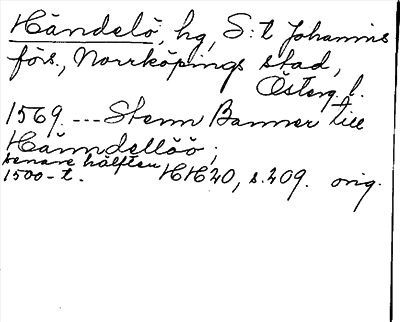 Händelö, hg, S:t Johannis
förs., Norrköpings stad,
Österg. l.
1569. --- Stenn Banner till
Häänndellöö;
senare hälften
1500-t. HH 20, s. 209. orig.